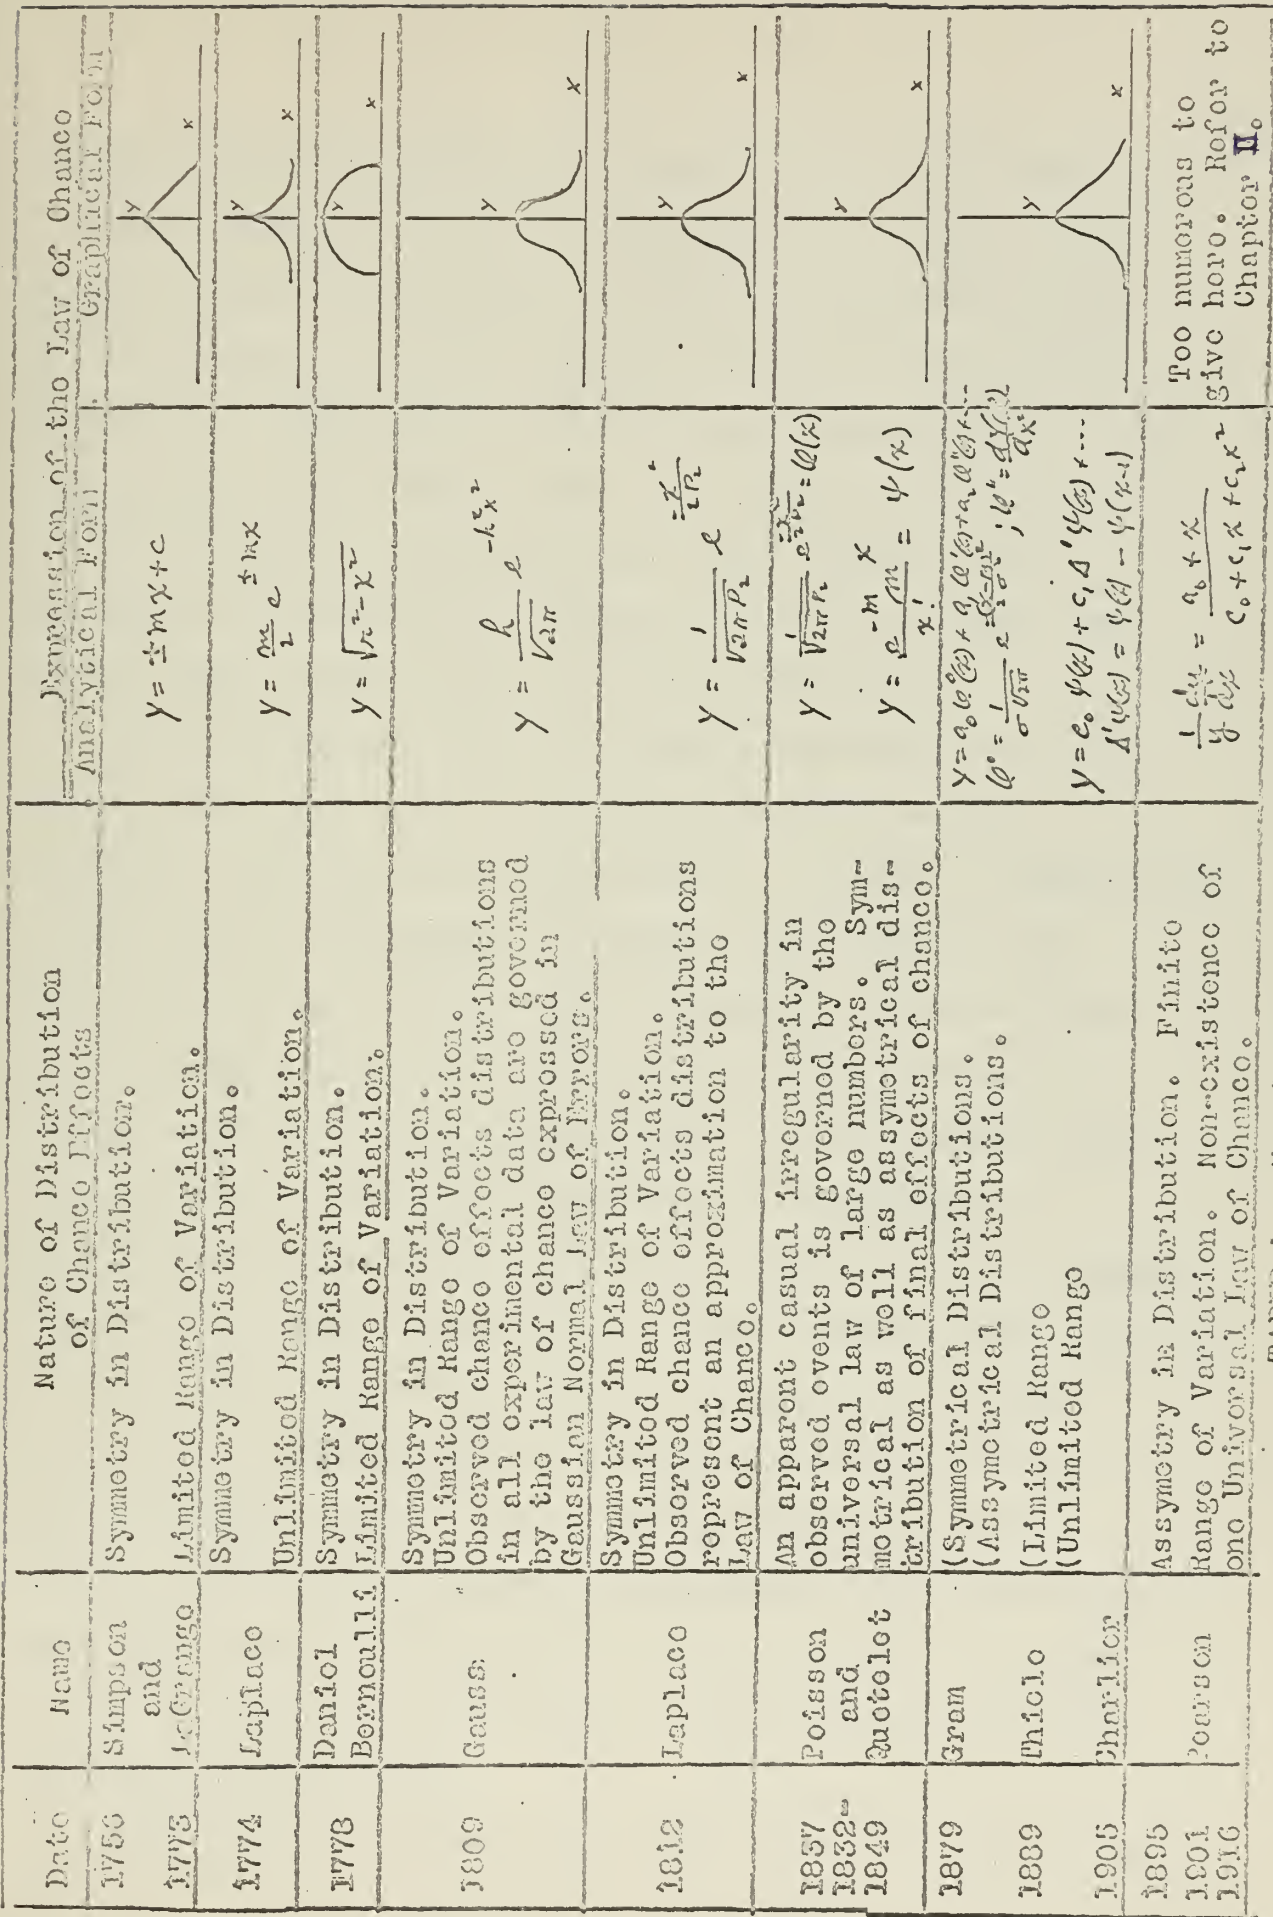 Date Name Nature of Distribution of Chance Effects Expression of the Law of Chance
Analytical Form Graphical Form
1756 Simpson Symmetry in Distribution.
and y = ±mx+c
1773 LaGrange Limited Range of Variation.
y x
1774 Laplace Symmetry in Distribution.
Unlimited Range of Variation. y = m/2 e^±mx
y x
1778 Daniel Symmetry in Distribution.
Bernoulli Limited Range of Variation. y = √r²-x²
y x
1809 Gauss Symmetry in Distribution.
Unlimited Range of Variation.
Observed chance effects distributions
in all experimental data are governed
by the law of chance expressed in
Gaussian Normal Law of Errors.
y = h/√2π e^-h²x²
y x
1812 Laplace Symmetry in Distribution.
Unlimited Range of Variation.
Observed chance effects distributions
represent an approximation to the
Law of Chance.
y = 1/√2πP₂ e^-x²/2P₂
y x
1837 Poisson An apparent casual irregularity in
1832- and observed events is governed by the
1849 Quetelet universal law of large numbers. Sym-
metrical as well as assymetrical dis-
tribution of final effects of chance.
y = 1/√2πP₂ e^-x²/2P₂ = φ(x)
y = e^-m m^x / x! = ψ(x)
y x
1879 Gram (Symmetrical Distributions.
(Assymetrical Distributions.
1889 Thiele (Limited Range
(Unlimited Range
1905 Charlier
y = a₀φ°(x) + a₁φ'(x) + a₂φ"(x) + ...
φ° = 1/σ√2π
y = c₀ψ(x) + c₁Δ'ψ(x) + ...
Δ'ψ(x) = ψ(x) - ψ(x-1)
y x
1895 Pearson Assymetry in Distribution. Finite
1901 Range of Variation. Non-existence of
1916 one Universal Law of Chance.
1/y dy/dx = a₀ + x / c₀ + c₁x + c₂x²
Too numerous to
give here. Refer to
Chapter II.